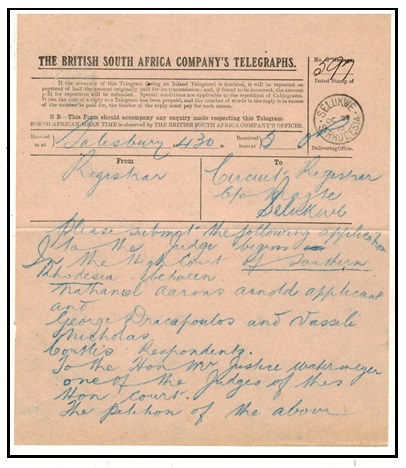 THE BRITISH SOUTH AFRICA COMPANY'S TELEGRAPHS.
397
Dated Stamp of
If the accuracy of this Telegram (being an Inland Telegram) is doubted, it will be repeated on
payment of half the amount originally paid for its transmission; and, if found to be incorrect, the amount
paid for repetition will be refunded. Special conditions are applicable to the repetition of Cablegrams.
When the cost of a reply to a Telegram has been prepaid, and the number of words in the reply is in excess
of the number so paid for, the Sender of the reply must pay for such excess.
N.B.—This Form should accompany any enquiry made respecting this Telegram
SOUTH AFRICAN MEAN TIME is observed by THE BRITISH SOUTH AFRICA COMPANY'S OFFICES.
SELUKWE
RHODESIA
Delivering Office.
Received Salisbury 430 Received 5
From To
Registrar Circuit Registrar
C/o Magte
Selukwe
Please submit the following application
to the judge begins
In the High Court of Southern
Rhodesia between
Nathaniel Aarons Arnold applicant
and
George Dracapoulos and Vasseli
Nicholas
Respondents.
To the Hon Mr Justice Watermeyer
one of the Judges of this
Hon Court.
The petition of the above